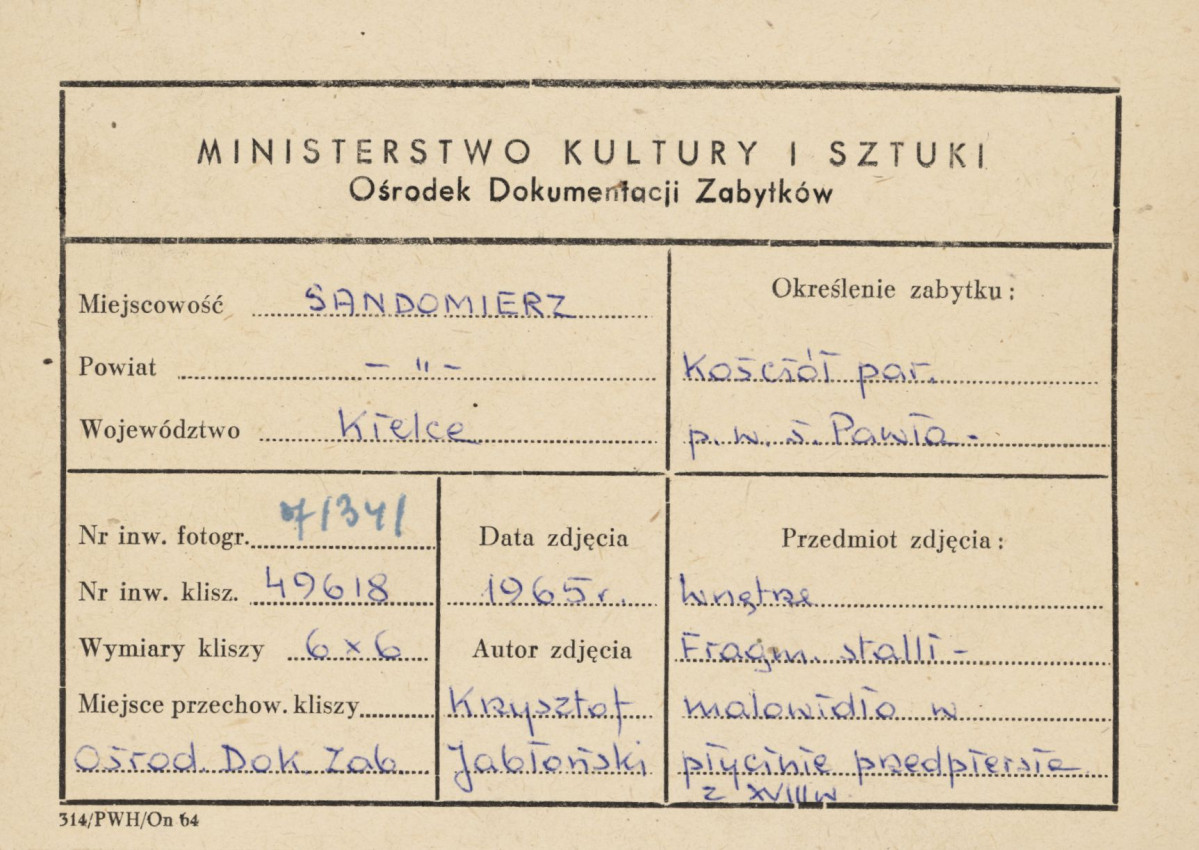 MINISTERSTWO KULTURY I SZTUKI
Ośrodek Dokumentacji Zabytków
Miejscowość SANDOMIERZ
Powiat – " –
Województwo Kielce
Określenie zabytku:
Kościół par.
p. w. ś. Pawła -
Nr inw. fotogr. 7/341
Nr inw. klisz. 49618
Wymiary kliszy 6×6
Miejsce przechow. kliszy
Ośrod. Dok Zab
Data zdjęcia
1965 r.
Autor zdjęcia
Krzysztof
Jabłoński
Przedmiot zdjęcia:
Wnętrze
Fragm. stalli -
malowidło w
płycinie przedpiersia
z XVIII w
314/PWH/On 64